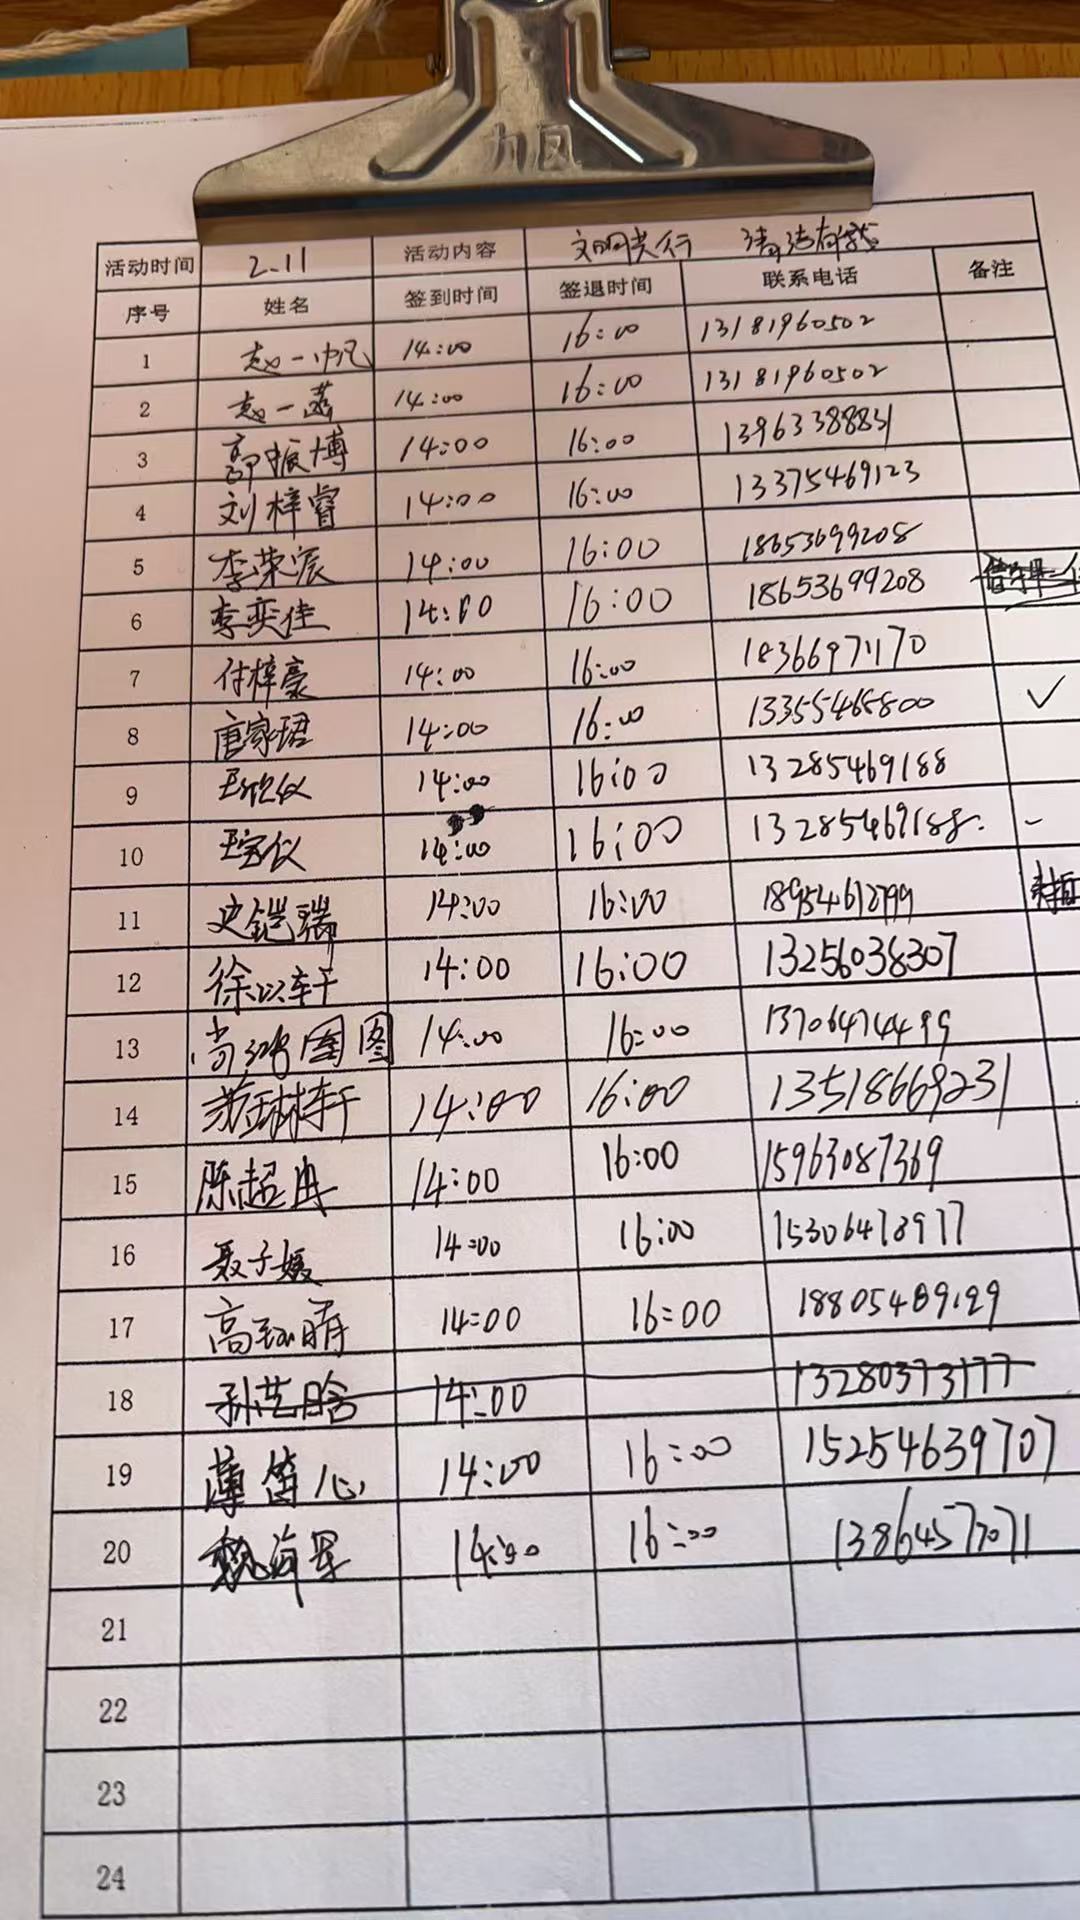 力风
活动时间 2.11 活动内容 文明共行 清洁有我
序号 姓名 签到时间 签退时间 联系电话 备注
1 赵一帆 14:00 16:00 13181960502
2 赵一菡 14:00 16:00 13181960502
3 郭振博 14:00 16:00 13963388831
4 刘梓睿 14:00 16:00 13375469123
5 李荣宸 14:00 16:00 18653699208
6 李奕佳 14:00 16:00 18653699208
7 付梓豪 14:00 16:00 18366971170
8 唐家珺 14:00 16:00 13355468800 ✓
9 王欣仪 14:00 16:00 13285469188
10 王宝仪 14:00 16:00 13285469188. -
11 史铠瑞 14:00 16:00 18954612799
12 徐以轩 14:00 16:00 13256038307
13 尚鸿图 14:00 16:00 13706474499
14 苏琳轩 14:00 16:00 13518669231
15 陈超冉 14:00 16:00 15963087369
16 聂子媛 14:00 16:00 15306478977
17 高玉晴 14:00 16:00 18805489129
18 孙艺晗 14:00 13280373177
19 薄笛心 14:00 16:00 15254639707
20 魏海军 14:00 16:00 13864577071
21
22
23
24